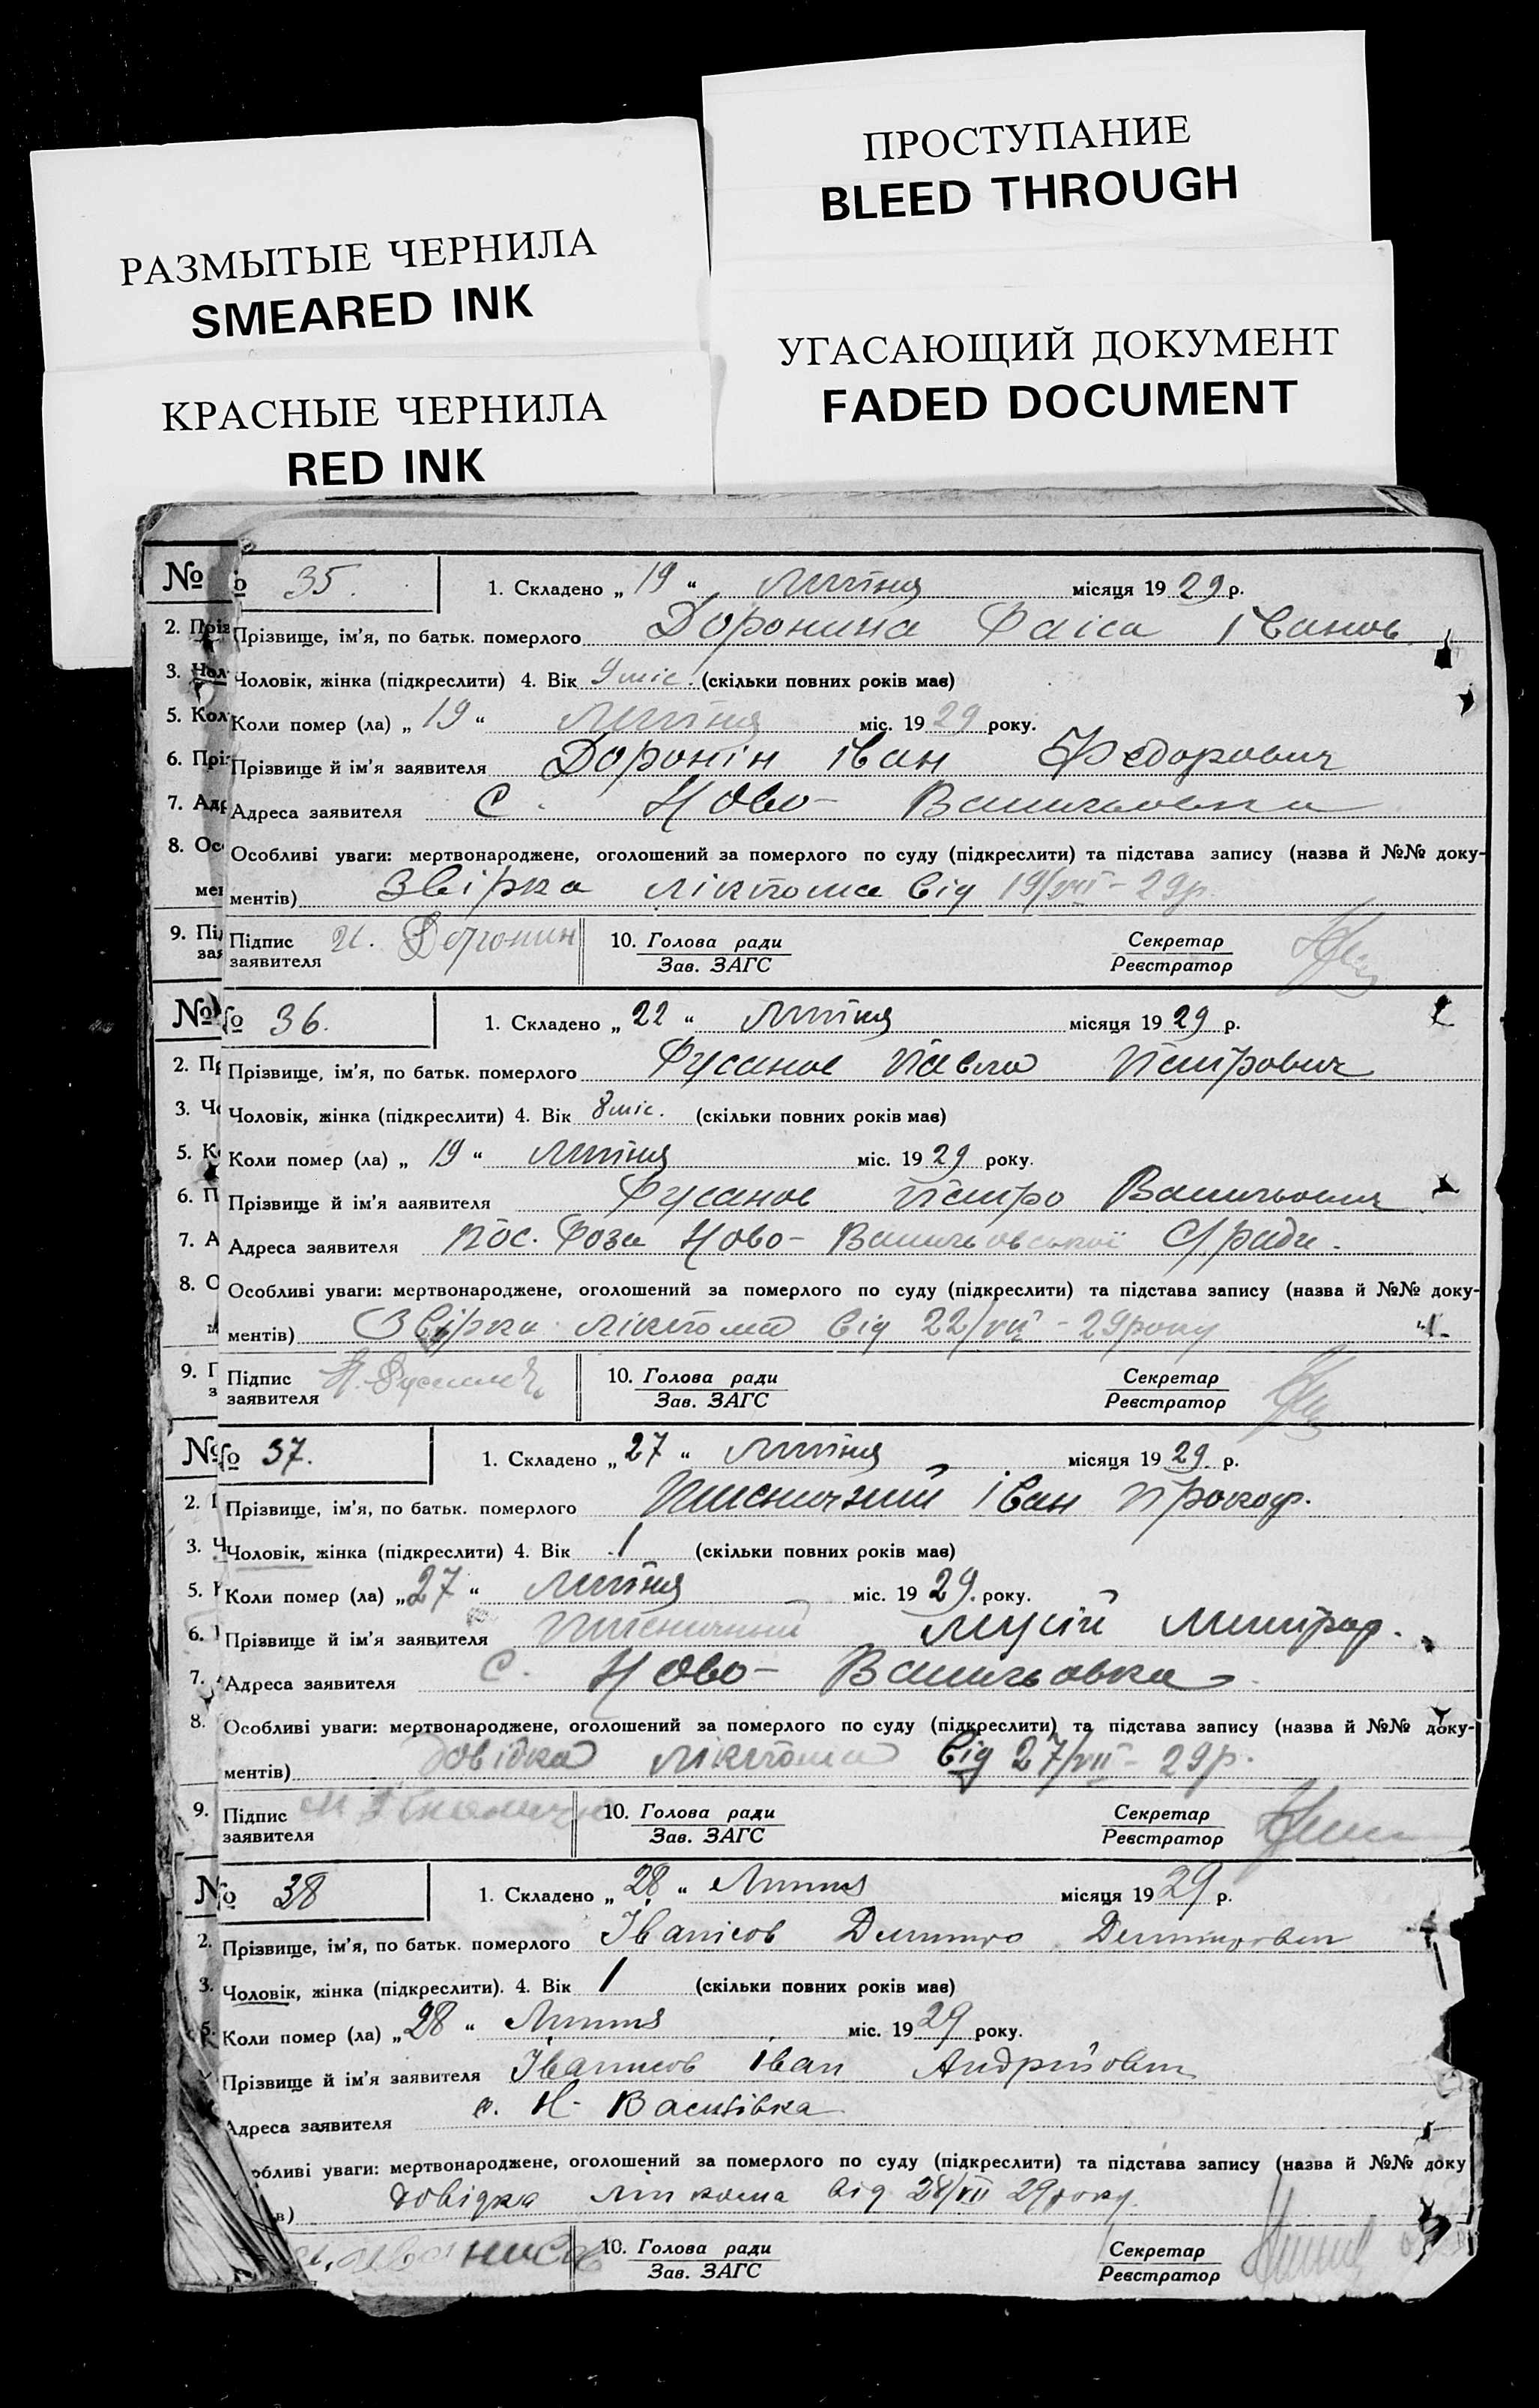 ПРОСТУПАНИЕ
BLEED THROUGH
РАЗМЫТЫЕ ЧЕРНИЛА
SMEARED INK
УГАСАЮЩИЙ ДОКУМЕНТ
FADED DOCUMENT
КРАСНЫЕ ЧЕРНИЛА
RED INK
№ 35. 1. Складено „ 19 “ Липня місяця 19 29 р.
2. Прізвище, ім'я, по батьк. померлого Доронина Раіса Іванов
3. Чоловік, жінка (підкреслити) 4. Вік 9 міс. (скільки повних років має)
5. Коли помер (ла) „ 19 “ Липня міс. 19 29 року.
6. Прізвище й ім'я заявителя Доронін Іван Федорович
7. Адреса заявителя С. Ново-Васильовка
8. Особливі уваги: мертвонароджене, оголошений за померлого по суду (підкреслити) та підстава запису (назва й №№ доку-
ментів) лікпома від 19/VII - 29р.
9. Підпис заявителя И. Доронин 10. Голова ради Секретар
Зав. ЗАГС Реєстратор
№ 36. 1. Складено „ 22 “ Липня місяця 19 29 р.
2. Прізвище, ім'я, по батьк. померлого Русанов Павло Петрович
3. Чоловік, жінка (підкреслити) 4. Вік 8 міс. (скільки повних років має)
5. Коли помер (ла) „ 19 “ Липня міс. 19 29 року.
6. Прізвище й ім'я заявителя Русанов Петро Васильович
7. Адреса заявителя пос. Роза Ново-Васильовської С/ради.
8. Особливі уваги: мертвонароджене, оголошений за померлого по суду (підкреслити) та підстава запису (назва й №№ доку-
ментів) лікпома від 22/VII - 29 року
9. Підпис заявителя 10. Голова ради Секретар
Зав. ЗАГС Реєстратор
№ 37. 1. Складено „ 27 “ Липня місяця 19 29 р.
2. Прізвище, ім'я, по батьк. померлого Пшеничний Іван Прокоф.
3. Чоловік, жінка (підкреслити) 4. Вік 1 (скільки повних років має)
5. Коли помер (ла) „ 27 “ Липня міс. 19 29. року.
6. Прізвище й ім'я заявителя Пшеничный Мусій
7. Адреса заявителя С. Ново-Васильовка
8. Особливі уваги: мертвонароджене, оголошений за померлого по суду (підкреслити) та підстава запису (назва й №№ доку-
ментів) Довідка лікпома від 27/VII - 29р.
9. Підпис заявителя 10. Голова ради Секретар
Зав. ЗАГС Реєстратор
№ 38 1. Складено „ 28 “ Липня місяця 19 29 р.
2. Прізвище, ім'я, по батьк. померлого Дмитро Дмитрович
3. Чоловік, жінка (підкреслити). 4. Вік 1 (скільки повних років має)
5. Коли помер (ла) „ 28 “ Липня міс. 19 29 року.
Прізвище й ім'я заявителя Іван Андрійович
Адреса заявителя с. Н-Василівка
обливі уваги: мертвонароджене, оголошений за померлого по суду (підкреслити) та підстава запису (назва й №№ доку
в) довідка від 28/VII 29 року.
10. Голова ради Секретар
Зав. ЗАГС Реєстратор